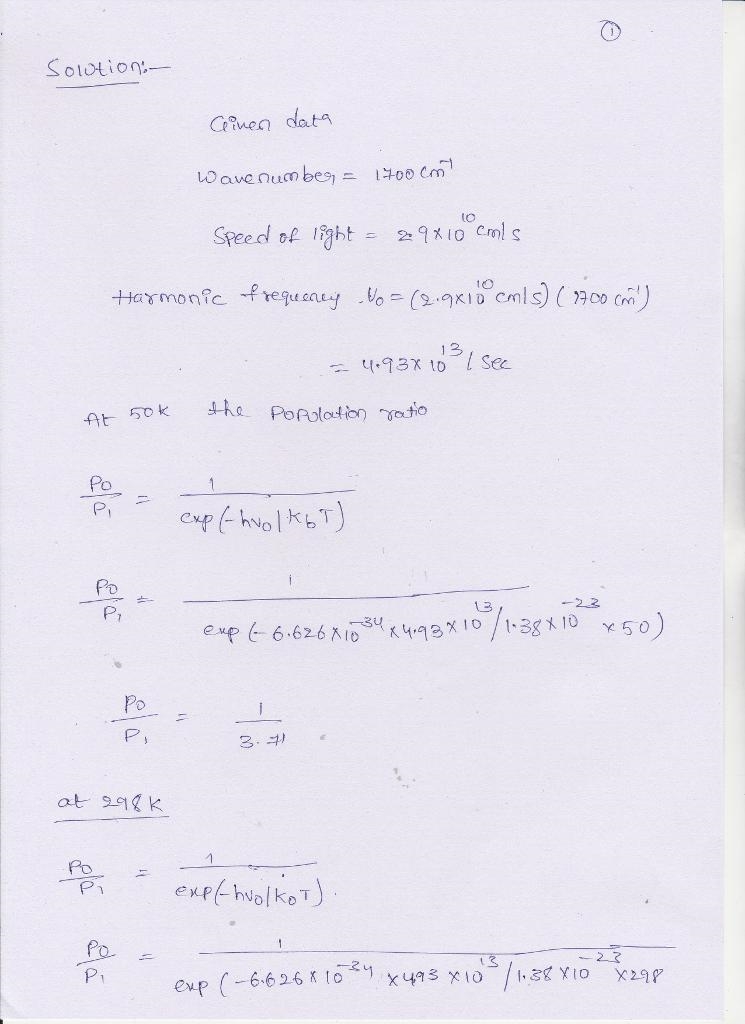 ①
Solution:-
Given data
Wavenumber = 1700 cm⁻¹
Speed of light = 2.9 x 10¹⁰ cm/s
Harmonic frequency ν₀ = (2.9x10¹⁰ cm/s) (1700 cm⁻¹)
= 4.93 x 10¹³ / sec
At 50k the population ratio
P₀/P₁ = 1/exp(-hν₀/k_bT)
P₀/P₁ = 1/exp(-6.626x10⁻³⁴ x4.93x10¹³/1.38x10⁻²³ x50)
P₀/P₁ = 1/3.71
at 298k
P₀/P₁ = 1/exp(-hν₀/k₀T).
P₀/P₁ = 1/exp(-6.626x10⁻³⁴ x493 x10¹³/1.38x10⁻²³ x298